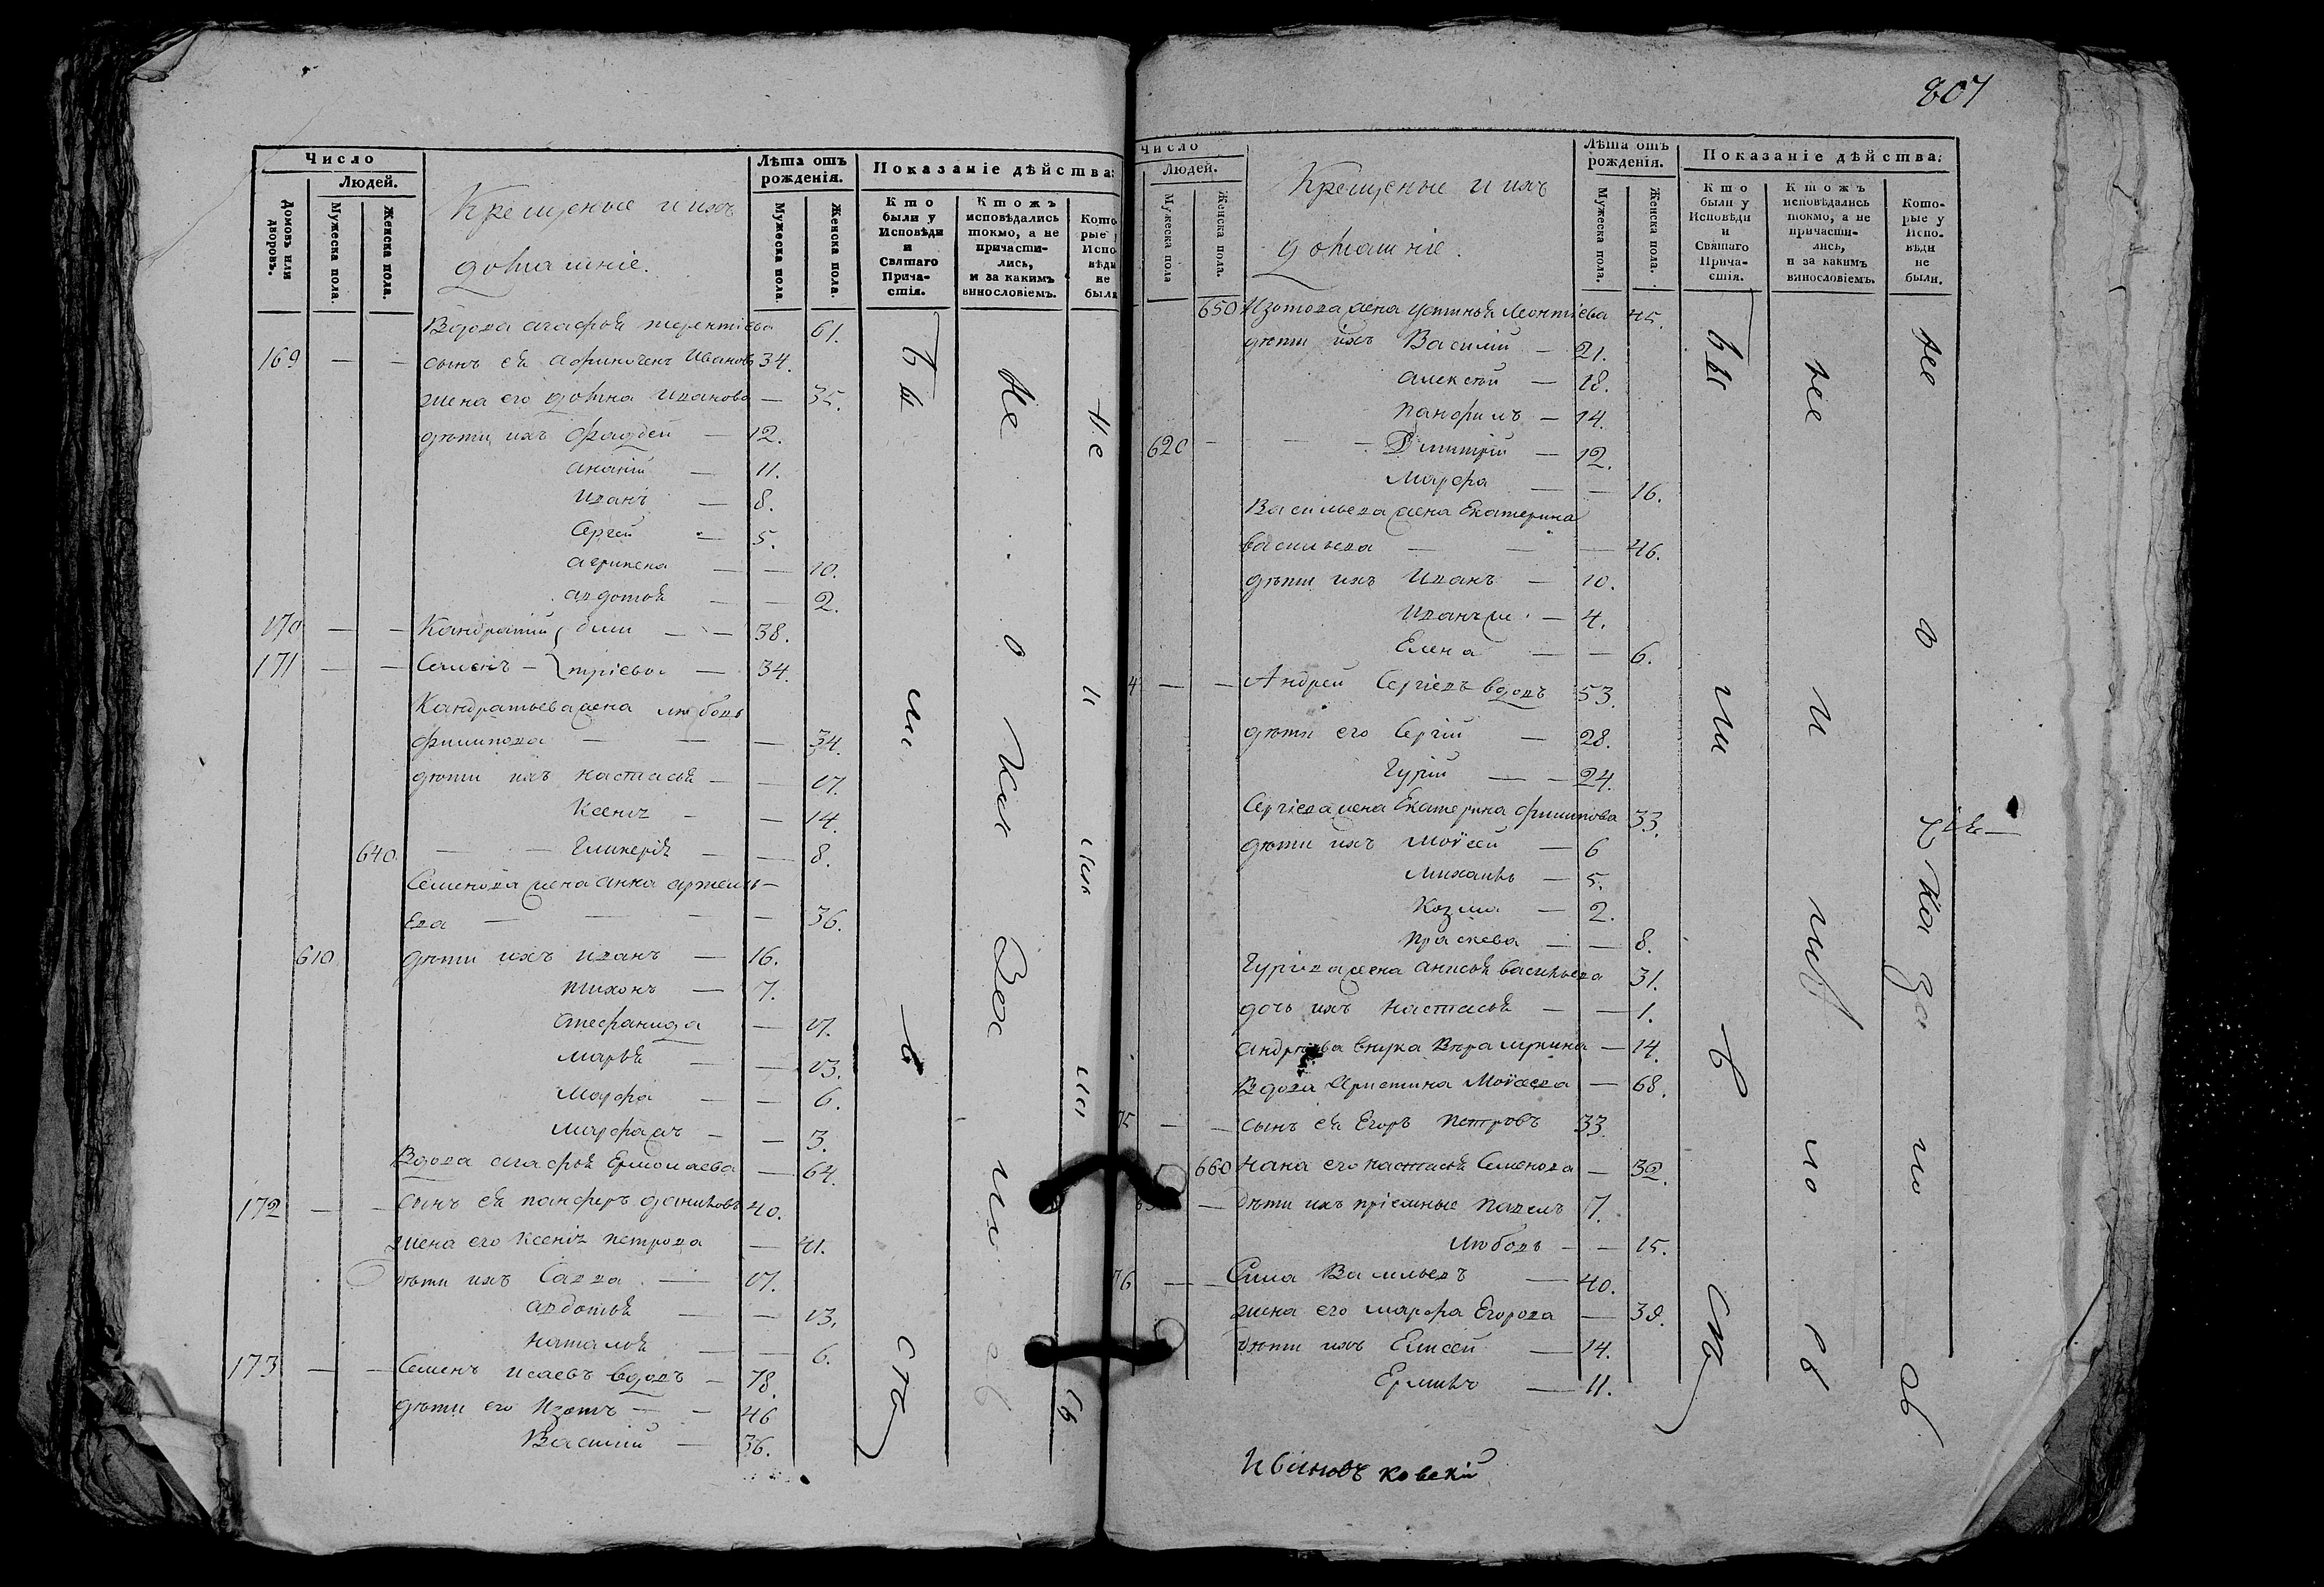 Число
Людей.
Домовъ или дворовъ.
Мужеска пола.
Женска пола.
Крещеные и ихъ
домашніе.
Лѣта отъ рожденія.
Мужеска пола.
Женска пола.
Показаніе дѣйства:
Кто были у Исповѣди и Святаго Прича-стія.
Ктожъ исповѣдались токмо, а не причасти-лись, и за какимъ винословіемъ.
Кото рые Испо вѣди не были
Вдова агафья терентіева 61.
169 — — сынъ ея Ивановъ 34.
жена его домна иванова — 35.
дѣти ихъ фадѣей — 12.
ананій — 11.
иванъ — 8.
Сергей — 5.
агрипена — — 10.
авдотья — — 2.
170 — — Кандратій дми — — 38.
171 — — Семенъ — тріевы — 34.
Кандратьева жена любовь
филипова — — — 34.
дѣти ихъ настасья — — 17.
Ксенія — — 14.
640. — — Гликерія — — 8.
Семенова жена анна артемь-
ева — — — — 36.
610 дѣти ихъ иванъ — 16.
тихонъ — 7.
степанида — 17.
марья — — 13.
Марфа — — 6.
марфа ж — — 3.
Вдова агафья Ермолаева — 64.
172 — — сынъ ея панферъ даниловъ 40.
жена его Ксенія петрова — 41.
дѣти ихъ Савва — 17.
авдотья — — 13.
наталья — — 6.
173 — — Семенъ исаевъ вдовъ — 78.
дѣти его Изотъ — — 46
Василій — 36.
бы
ли
въ
сіи
Не
Не
807
Число
Людей.
Мужеска пола
Женска пола.
Крещеные и ихъ
домашніе.
Лѣта отъ рожденія.
Мужеска пола.
Женска пола.
Показаніе дѣйства:
Кто были у Исповѣди и Святаго Прича-стія.
Ктожъ исповѣдались токмо, а не причасти-лись, и за какимъ винословіемъ.
Кото-рые у Испо-вѣди не были.
650 Изотова жена устинья Леонтіева 45.
дѣти ихъ Василій — 21.
алексѣй — 18.
панфилъ — 14.
620 — — — Дмитрій — 12.
Марфа — — 16.
Васильева жена Екатерина
васильева — — — 46.
дѣти ихъ Иванъ — 10.
иванъ ж — 4.
Елена — — 6.
4 — — Андрей Сергіевъ вдовъ 53.
дѣти его Сергій — 28.
Гурій — — 24.
Сергіева жена Екатерина филипова 33.
дѣти ихъ Моѵсей — 6
Михаилъ — 5.
Козма — 2.
праскева — — 8.
Гуріева жена анисья васильева 31.
дочь ихъ настасья — — 1.
андреева внука Вѣра — 14.
Вдова Христина Моѵсеева — 68.
75 — — сынъ ея Егоръ петровъ 33.
660 жена его настасья Семенова — 32.
— дѣти ихъ пріемные павелъ 7.
любовь — — 15.
76 — — Сила Васильевъ — 40.
жена его марфа Егорова — 38.
дѣти ихъ Елисей — 14.
Ермилъ — 11.